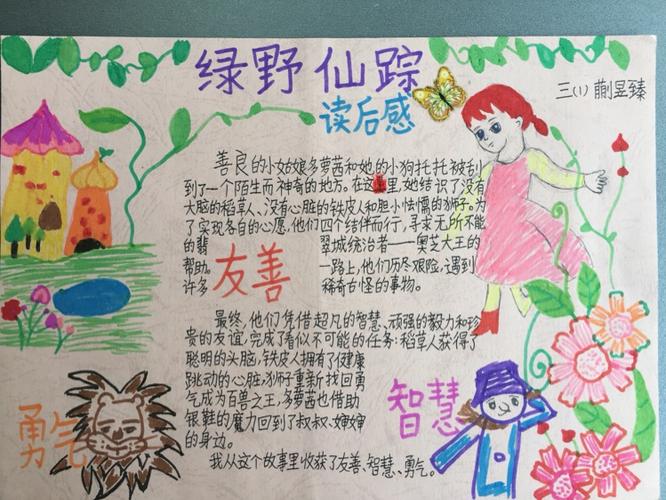 绿野仙踪
读后感
三(1) 蒯昱臻
善良的小姑娘多萝茜和她的小狗托托被刮
到了一个陌生而神奇的地方。在这里,她结识了没有
大脑的稻草人、没有心脏的铁皮人和胆小怯懦的狮子。为
了实现各自的心愿,他们四个结伴而行,寻求无所不能
的翡翠城统治者——奥芝大王的
帮助。一路上,他们历尽艰险,遇到
许多稀奇古怪的事物。
友善
最终,他们凭借超凡的智慧、顽强的毅力和珍
贵的友谊,完成了看似不可能的任务:稻草人获得了
聪明的头脑,铁皮人拥有了健康
跳动的心脏,狮子重新找回勇
气成为百兽之王,多萝茜也借助
银鞋的魔力回到了叔叔、婶婶
的身边。
我从这个故事里收获了友善、智慧、勇气。
勇气
智慧